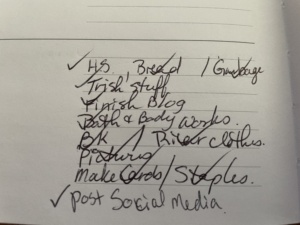 HS, Bread / Garbage
Trish stuff
Finish Blog
Bath & Body Works.
BK / River clothes.
Pictures
Make Cards / Staples.
Post Social Media.